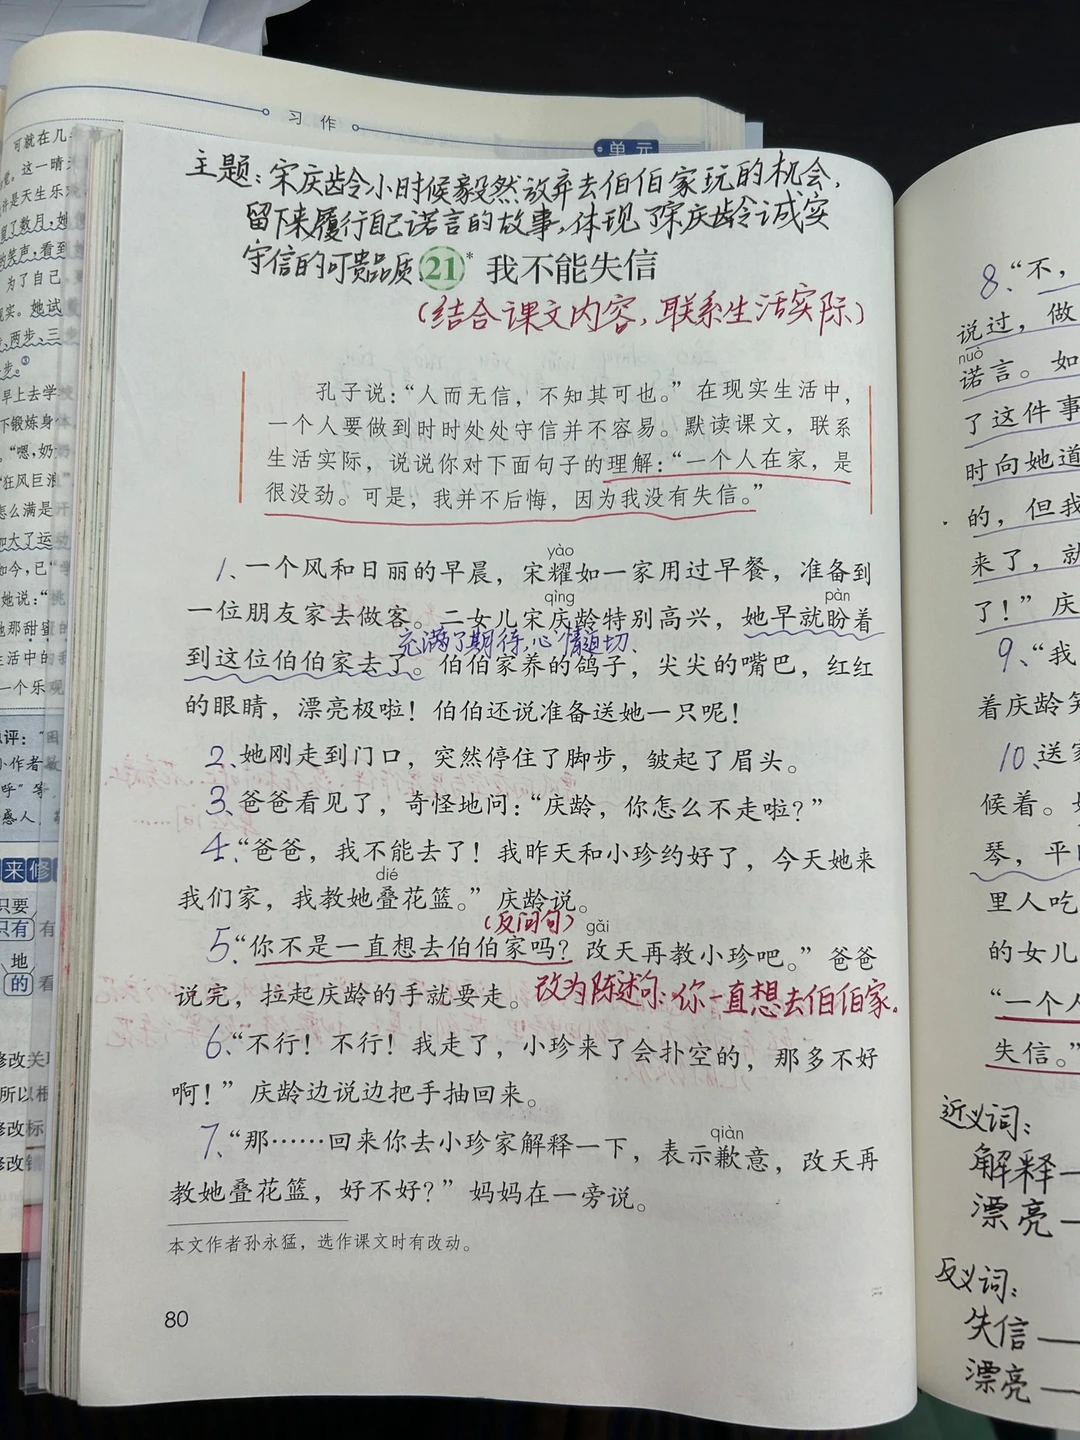 习作
单元
主题：宋庆龄小时候毅然放弃去伯伯家玩的机会，
留下来履行自己诺言的故事，体现了宋庆龄诚实
守信的可贵品质。
21* 我不能失信
（结合课文内容，联系生活实际）
孔子说：“人而无信，不知其可也。”在现实生活中，
一个人要做到时时处处守信并不容易。默读课文，联系
生活实际，说说你对下面句子的理解：“一个人在家，是
很没劲。可是，我并不后悔，因为我没有失信。”
yào
1、一个风和日丽的早晨，宋耀如一家用过早餐，准备到
qìng pàn
一位朋友家去做客。二女儿宋庆龄特别高兴，她早就盼着
充满了期待，心情迫切、
到这位伯伯家去了。伯伯家养的鸽子，尖尖的嘴巴，红红
的眼睛，漂亮极啦！伯伯还说准备送她一只呢！
2、她刚走到门口，突然停住了脚步，皱起了眉头。
3、爸爸看见了，奇怪地问：“庆龄，你怎么不走啦？”
4、“爸爸，我不能去了！我昨天和小珍约好了，今天她来
dié
我们家，我教她叠花篮。”庆龄说。
（反问句） gǎi
5、“你不是一直想去伯伯家吗？改天再教小珍吧。”爸爸
说完，拉起庆龄的手就要走。改为陈述句：你一直想去伯伯家。
6、“不行！不行！我走了，小珍来了会扑空的，那多不好
啊！”庆龄边说边把手抽回来。
qiàn
7、“那……回来你去小珍家解释一下，表示歉意，改天再
教她叠花篮，好不好？”妈妈在一旁说。
本文作者孙永猛，选作课文时有改动。
80
8、“不，
说过，做
nuò
诺言。如
了这件事
时向她道
的，但我
来了，就
了！”庆
9、“我
着庆龄笑
10、送客
候着。
琴，平
里人吃
的女儿
“一个人
失信。”
近义词：
解释—
漂亮—
反义词：
失信—
漂亮—
可就在几
这一晴
是天生乐
了数月，她
的笑声，看到
为了自己，
现实。她试
两步、三
步。③
早上去学校
下锻炼身体
“嗯，奶奶
“狂风巨浪”
怎么满是
如今，已
她说：“
她那甜蜜的
生活中的
一个乐观
评：“
小作者
呼”等
感人，
来修
只要
只有 有
地
的 看
修改关
所以
修改标
修改错